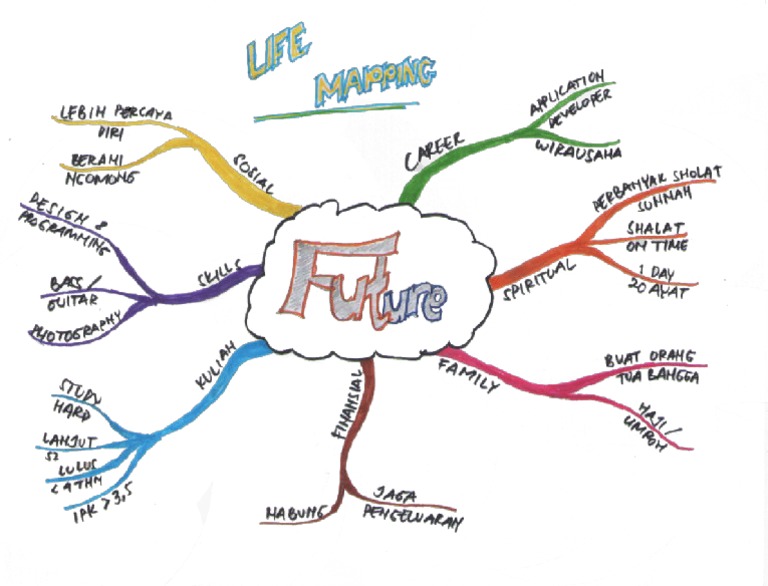 LIFE
MAPPING
Future
CAREER
APPLICATION
DEVELOPER
WIRAUSAHA
SPIRITUAL
PERBANYAK SHOLAT
SUNNAH
SHALAT
ON TIME
1 DAY
20 AYAT
FAMILY
BUAT ORANG
TUA BANGGA
HAJI/
UMROH
FINANSIAL
JAGA
PENGELUARAN
NABUNG
KULIAH
STUDY
HARD
LANJUT
S2
LULUS
< 4 THN
IPK > 3,5
SKILLS
DESIGN &
PROGRAMMING
BASS/
GUITAR
PHOTOGRAPHY
SOSIAL
LEBIH PERCAYA
DIRI
BERANI
NGOMONG